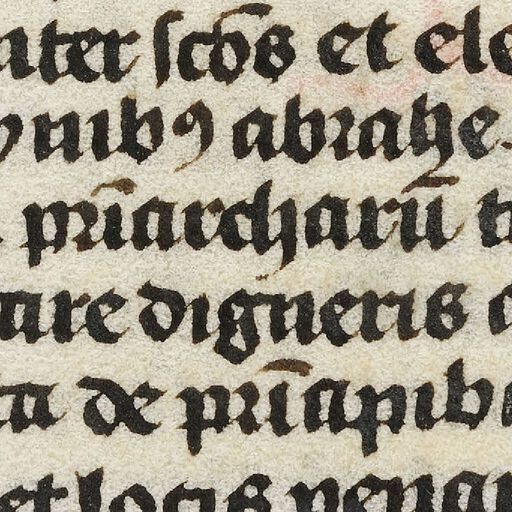 inter sc̄os et ele
nibꝯ abrahe
pr̄iarcharū tu
are digneris
de pr̄icipib
et locis penar